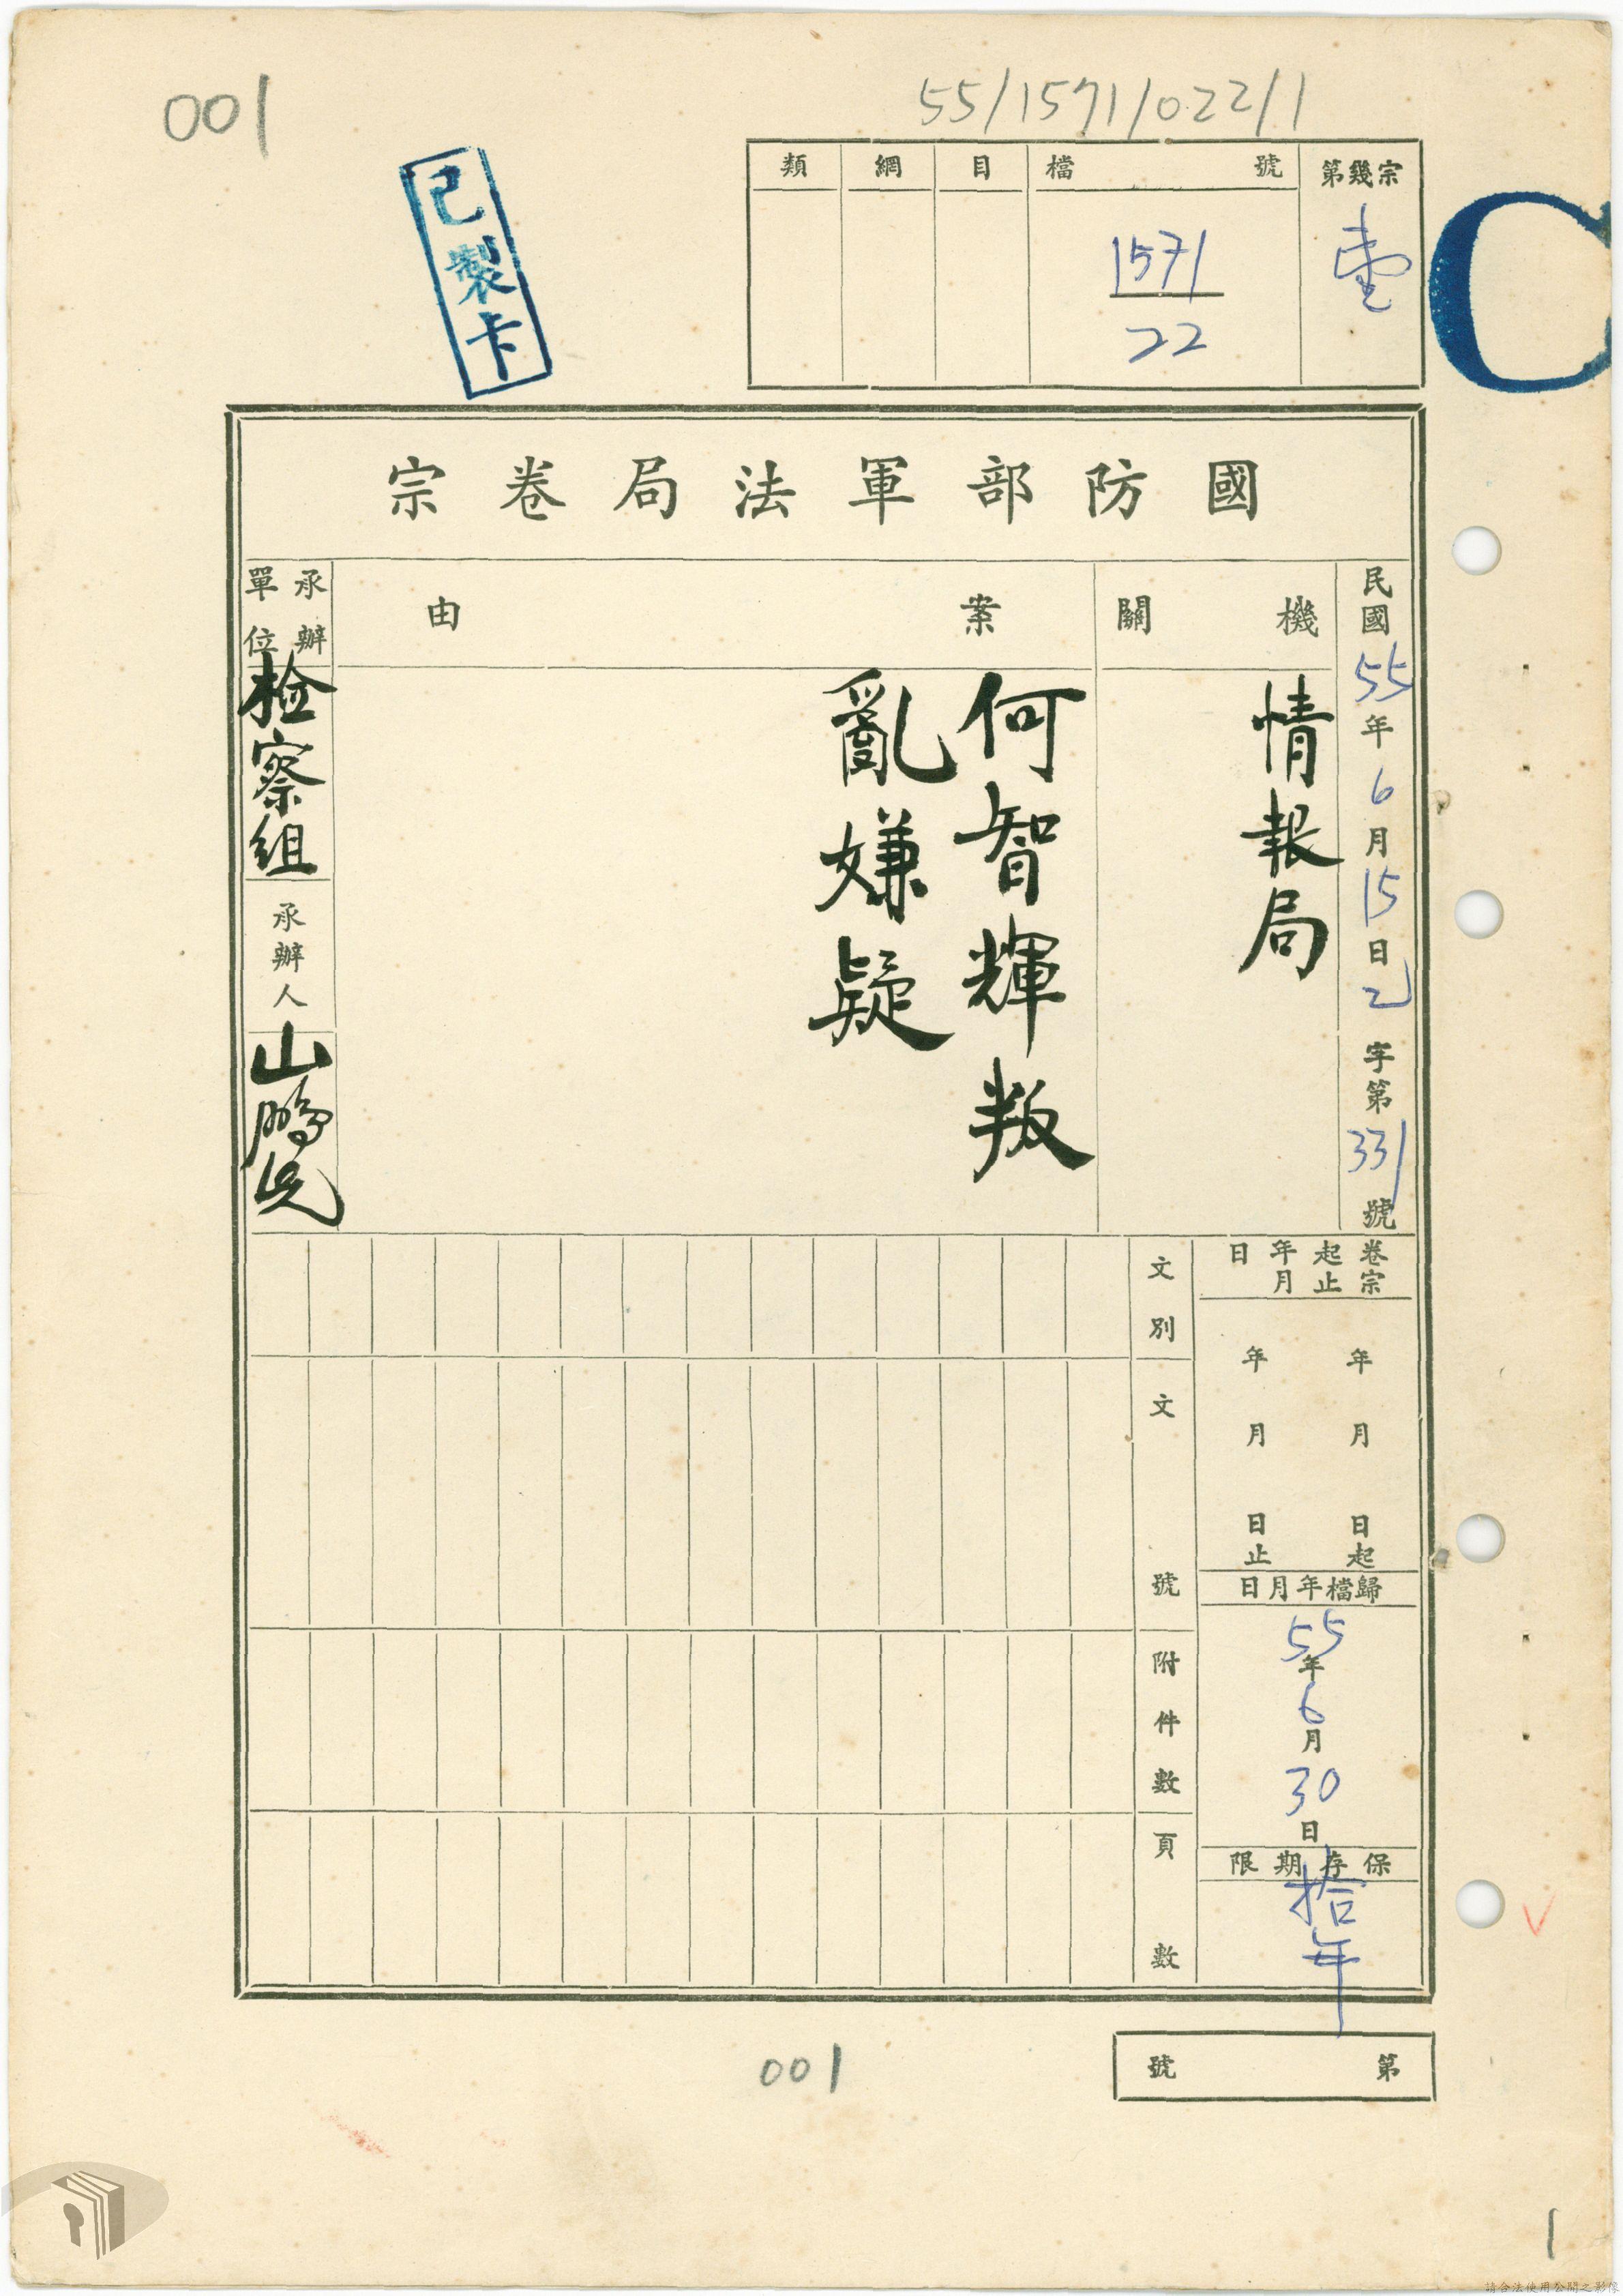 001
55/1571/022/1
已製卡
第幾宗
壹
檔號
1571
22
目
綱
類
C
國防部軍法局卷宗
民國55年6月15日
字第331號
機關
情報局
案由
何智輝叛
亂嫌疑
承辦單位
檢察組
承辦人
卷宗起止年月日
年月日起
年月日止
歸檔年月日
55年6月30日
保存期限
拾年
文別
文號
附件數
頁數
第號
001
1
請合法使用公開之影像